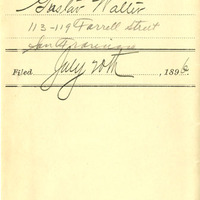 Gustav Walter
113-119 Farrell Street
San Francisco
Filed July 20th, 1896.